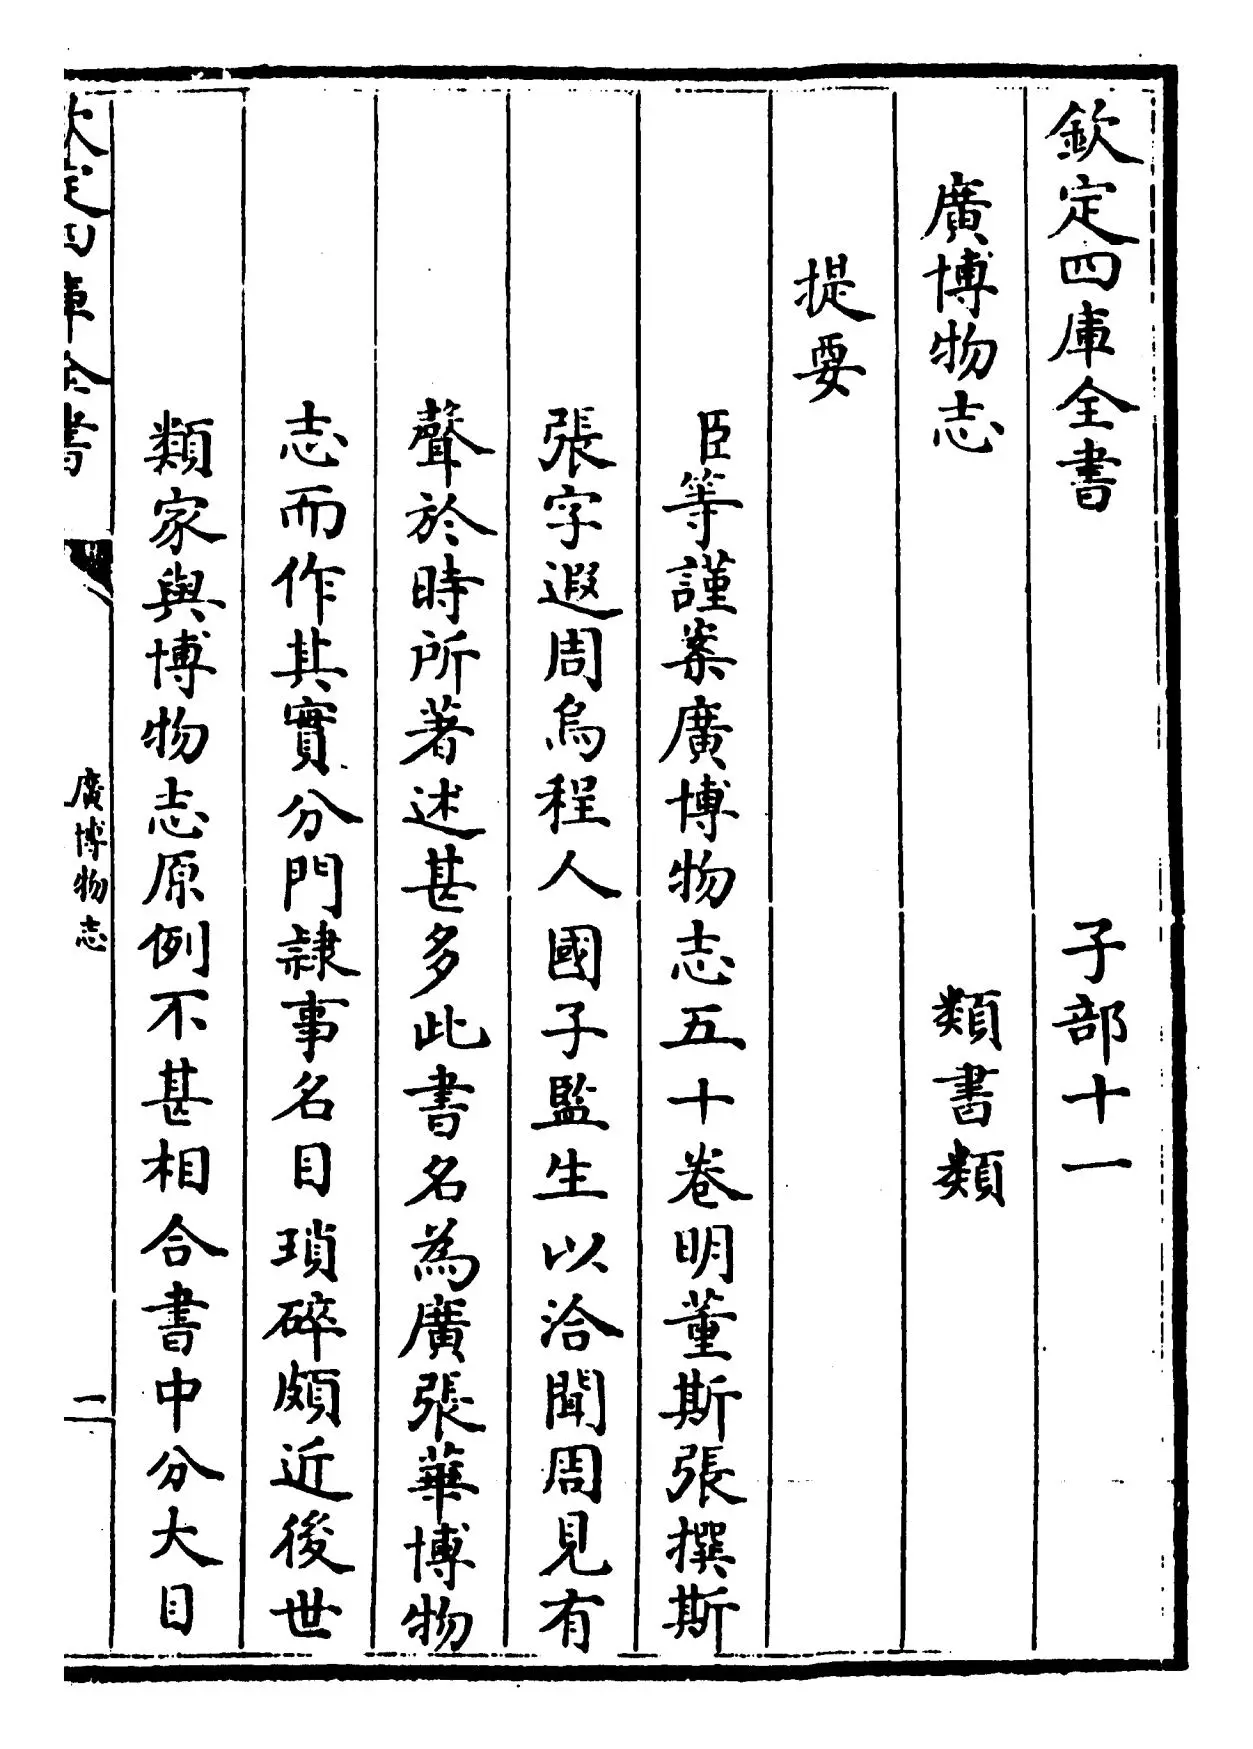 欽定四庫全書　子部十一
廣博物志　類書類
提要
臣等謹案廣博物志五十卷明董斯張撰斯
張字遐周烏程人國子監生以洽聞周見有
聲於時所著述甚多此書名為廣張華博物
志而作其實分門隷事名目瑣碎頗近後世
類家與博物志原例不甚相合書中分大目
欽定四庫全書
廣博物志
一